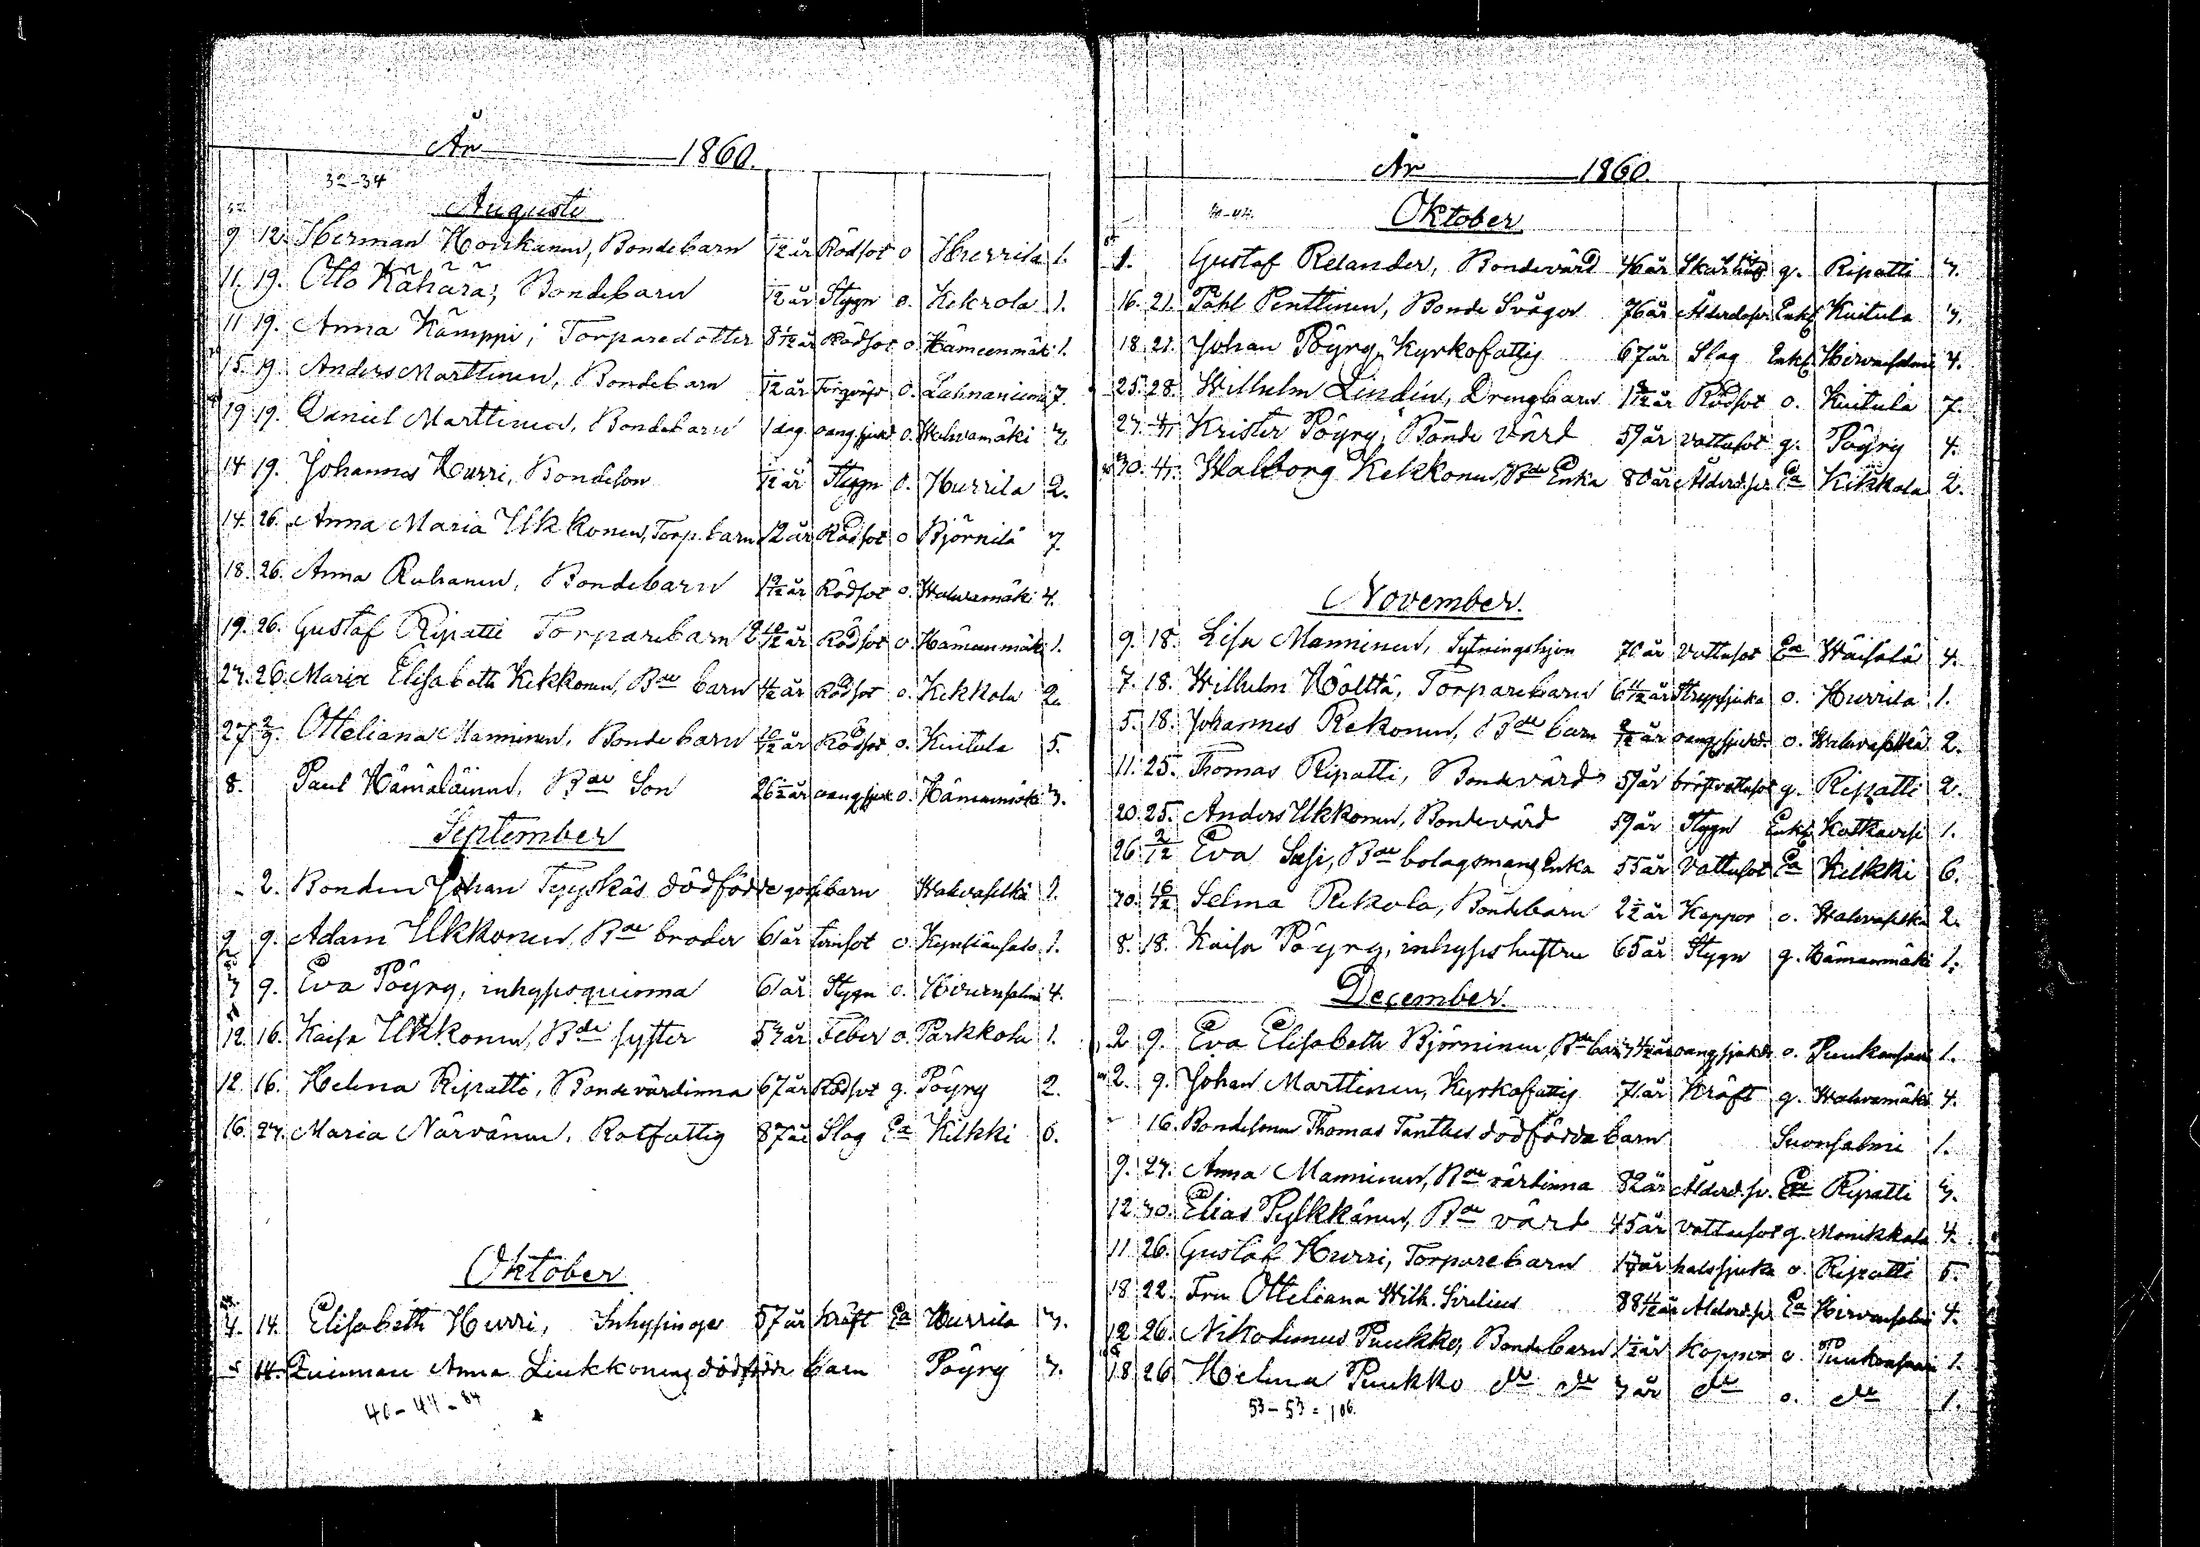 År 1860.
32-34
Augusti
9. 12. Herman Houkanen, Bondebarn 1/12 år Rödsot o Hurrila 1.
11. 19. Otto Kähärä, Bondebarn 1/12 år Stygn o. Kekrola 1.
11. 19. Anna Kämppi, Torparedotter 8 1/12 år Rödsot o. Hämeenmäki 1.
15. 19. Anders Marttinen, Bondebarn 1/12 år o. Lahnaniemi 7.
19. 19. Daniel Marttinen, Bondebarn 1 dag oang sjukd o. Wahvamäki 3.
14. 19. Johannes Hurri, Bondeson 1/12 år Stygn o. Hurrila 2.
14. 26. Anna Maria Ukkonen, Torp. barn 12 år Rödsot o Björnilä 7.
18. 26. Anna Ruhanen, Bondebarn 1 9/12 år Rödsot o. Wahvamäki 4.
19. 26. Gustaf Ripatti Torparebarn 2 10/12 år Rödsot o. Hämeenmäki 1.
23. 26. Maria Elisabeth Kekkonen, Bde barn 4/12 år Rödsot o. Kekkola 2.
27. 2/9. Otteliana Manninen, Bondebarn 10/12 år Rödsot o. Kuitula 5.
8. Paul Hämäläinen, Bde Son 26 1/2 år oang sjuk o. Hämeenmäki 3.
September
- 2. Bonden Johan Tyyskäs dödfödde gossebarn Wahvaselkä 1.
2. 9. Adam Ukkonen, Bde broder 61 år o. Kynsiänsalo 1.
3 9. Eva Pöyry, inhysesquinna 61 år Stygn o. Hirvensalmi 4.
12. 16. Kaisa Ukkonen, Bde syster 53 år Feber o. Parkkola 1.
12. 16. Helena Ripatti, Bondevärdinna 67 år Rödsot g. Pöyry 2.
16. 23. Maria Närvänen, Rotfattig 87 år Slag Ea Kilkki 6.
Oktober
4. 14. Elisabeth Hurri, Inhysinge 57 år Kräft Ea Hurrila 3.
5 14. Quinnan Anna Liukkonens dödfödde barn Pöyry 3.
40-44-84
År 1860.
40-44.
Oktober
1. Gustaf Relander, Bondevärd 46 år g. Ripatti 3.
16. 21. Påhl Penttinen, Bonde Svåger 76 år Ålderdoms Enkl Kuitula 3.
18. 21. Johan Pöyry, Kyrkofattig 67 år Slag Enkl Hirvensalmi 4.
25. 28. Wilhelm Lindén, Drengbarn 1 8/12 år Rödsot o. Kuitula 7.
27. 4/11 Krister Pöyry, Bondevärd 59 år Vattusot g. Pöyry 4.
30. 4/11. Walborg Kekkonen, Bde Enka 80 år Ålderd.sv. Ea Kekkola 2.
November.
9. 18. Lisa Manninen, Sytningshjon 70 år Vattusot Ea Wäisälä 4.
7. 18. Wilhelm Hölttä, Torparebarn 6 4/12 år Strypsjuka o. Hurrila 1.
5. 18. Johannes Rekonen, Bde barn 8/12 år oang sjukd. o. Wahvaselkä 2.
11. 25. Thomas Ripatti, Bondevärd 59 år bröstvattusot g. Ripatti 2.
20. 25. Anders Ukkonen, Bondevärd 59 år Stygn Enkl Kotkavesi 1.
26. 2/12 Eva Susi, Bde bolagsmans Enka 55 år Vattusot Ea Kilkki 6.
30. 16/12 Selma Rekola, Bondebarn 2 1/2 år Koppor o. Wahvaselkä 2.
8. 18. Kaisa Pöyry, inhyses hustru 65 år Stygn g. Hämeenmäki 1.
December.
2 9. Eva Elisabeth Björninen Bde barn 3 4/12 år oang sjukd. o. Puukonsaari 1.
2. 9. Johan Marttinen, Kyrkofattig 71 år Kräft g. Wahvamäki 4.
- 16. Bondesonen Thomas Tanttus dödfödda barn Suonsalmi 1.
9. 23. Anna Manninen, Bde värdinna 82 år Ålderd.sv. Ea Ripatti 3.
12. 30. Elias Pylkkänen, Bde värd 45 år Vattusot g. Monikkala 4.
11. 26. Gustaf Hurri, Torparebarn halssjuka o. Ripatti 5.
18. 22. Fru Otteliana Wilh. Sirelius 88 4/12 år Ålderd.sv Ea Hirvensalmi 4.
12 26. Nikodemus Puukko, Bondebarn 1 1/2 år Koppor o. Puukonsaari 1.
18 26. Helena Puukko do do 3 år do o. do 1.
53-53=106.